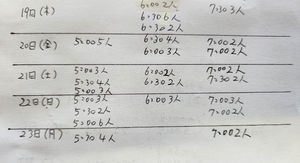 19日(木) 6:002人 7:303人
6:306人
6:302人
20日(金) 5:005人 6:304人 7:002人
6:003人 7:002人
21日(土) 5:003人 6:002人 7:002人
5:304人 6:302人 7:302人
5:003人
22日(日) 5:003人 6:003人 7:003人
5:302人 7:002人
5:006人
23日(月) 5:304人 7:002人